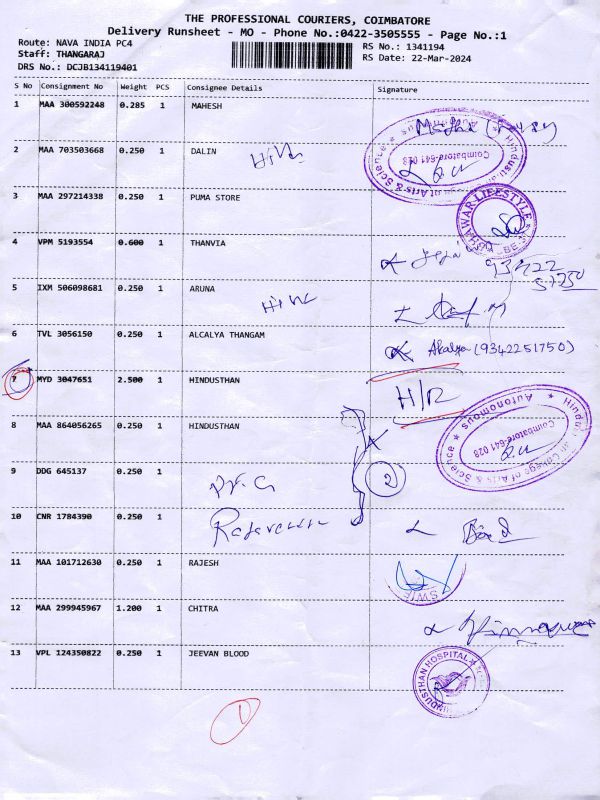 THE PROFESSIONAL COURIERS, COIMBATORE
Delivery Runsheet - MO - Phone No.:0422-3505555 - Page No.:1
Route: NAVA INDIA PC4
RS No.: 1341194
Staff: THANGARAJ
RS Date: 22-Mar-2024
DRS No.: DCJB134119401
S No Consignment No Weight PCS Consignee Details Signature
1 MAA 300592248 0.285 1 MAHESH
2 MAA 703503668 0.250 1 DALIN
Coimbatore-641 028
3 MAA 297214338 0.250 1 PUMA STORE
LIFESTYLE
4 VPM 5193554 0.600 1 THANVIA
5 IXM 506098681 0.250 1 ARUNA
6 TVL 3056150 0.250 1 ALCALYA THANGAM
Akalya (9342251750)
7 MYD 3047651 2.500 1 HINDUSTHAN
H/R
8 MAA 864056265 0.250 1 HINDUSTHAN
Autonomous
Coimbatore-641 028
College of Arts & Science
9 DDG 645137 0.250 1
2
10 CNR 1784390 0.250 1
11 MAA 101712630 0.250 1 RAJESH
12 MAA 299945967 1.200 1 CHITRA
13 VPL 124350822 0.250 1 JEEVAN BLOOD
HINDUSTHAN HOSPITAL
1